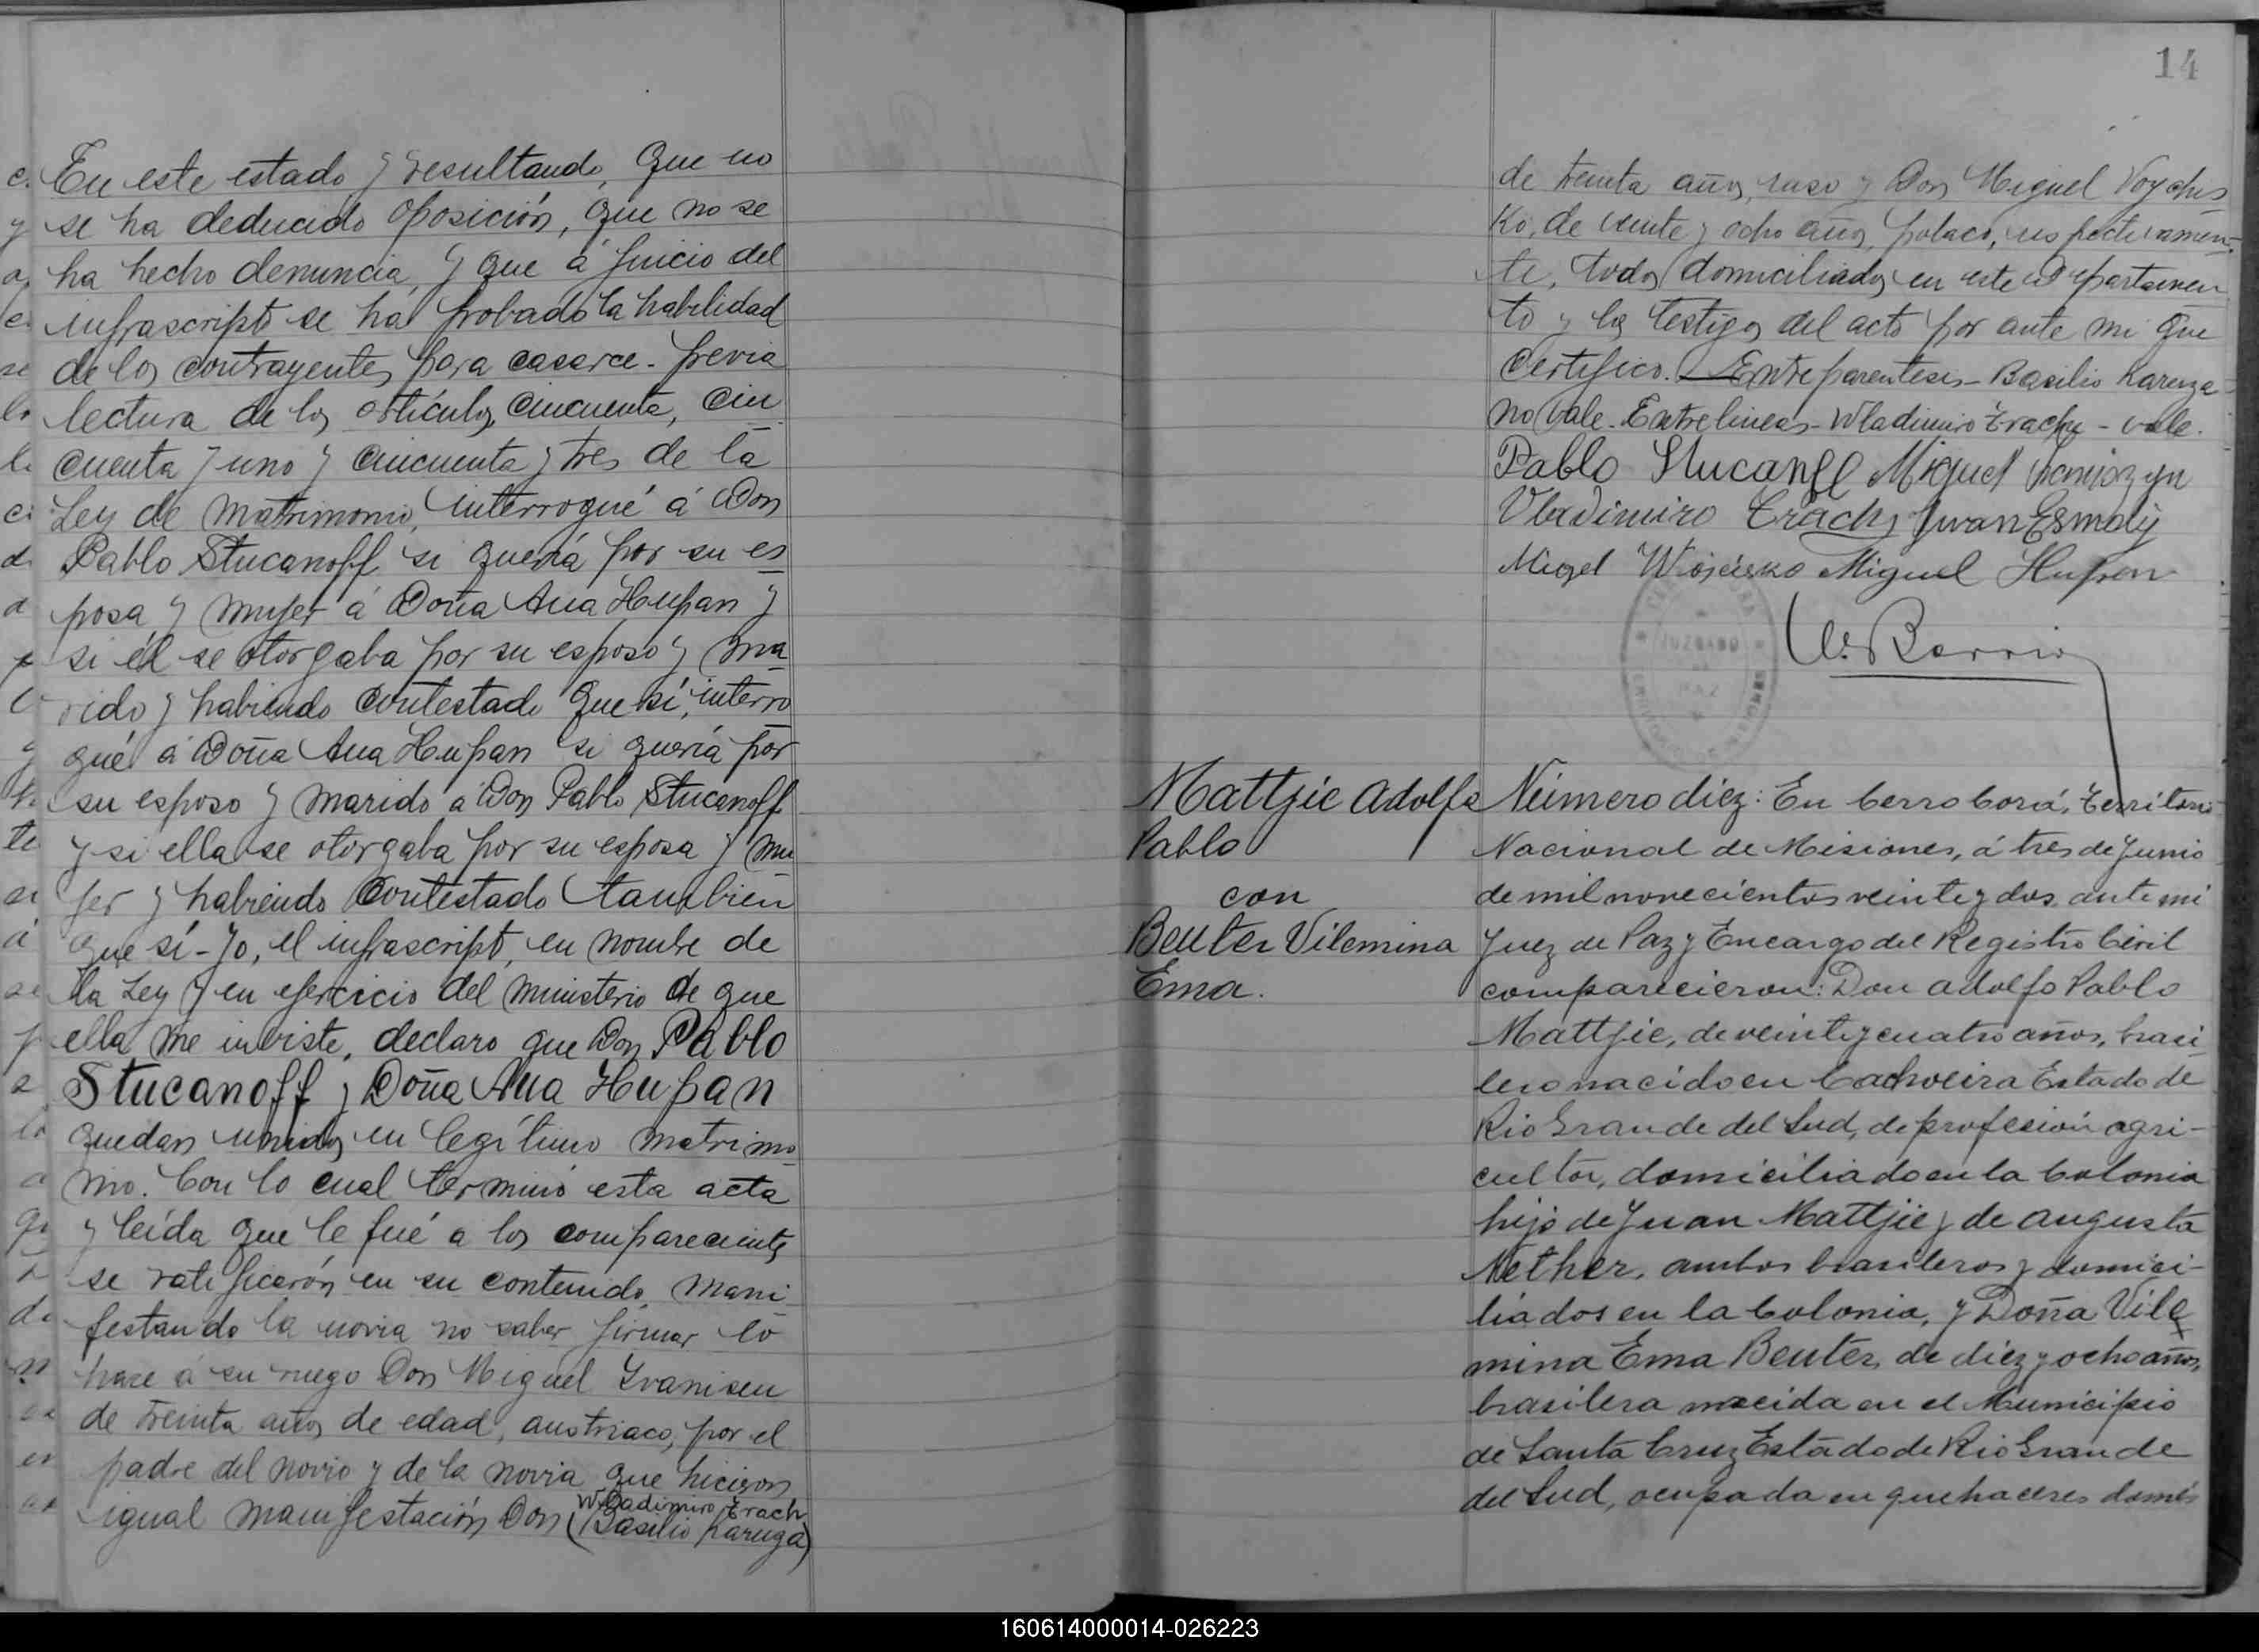 En este estado y resultando, que no
se ha deducido oposición, que no se
ha hecho denuncia, y que á juicio del
infrascripto se ha probado la habilidad
de los contrayentes para casarce. previa
lectura de los artículos, cincuenta, cin
cuenta y uno y cincuenta y tres de la
Ley de Matrimonio, interrogué á Don
Pablo Stucanoff si quería por su es
posa y mujer á Doña Ana Hupan y
si él se otorgaba por su esposo y ma
rido y habiendo contestado que sí, interro
gué á Doña Ana Hupan si quería por
su esposo y marido á Don Pablo Stucanoff
y si ella se otorgaba por su esposa y mu
jer y habiendo contestado tambien
que sí - Yo, el infrascripto, en nombre de
la Ley y en ejercicio del ministerio de que
ella me inviste, declaro que Don Pablo
Stucanoff y Doña Ana Hupan
quedan unidos en legítimo matrimo
nio. Con lo cual terminó esta acta
y leída que le fué a los comparecientes
se ratificarón en su contenido, mani
festando la novia no saber firmar lo
hace á su ruego Don Miguel Ivanisen
de treinta años de edad, austriaco, por el
padre del novio y de la novia que hicieron
Wladimiro Erach
igual manifestación Don (Basilio Karuga)
14
de treinta años, ruso y Don Miguel Voychis
Ko, de veinte y ocho años, polaco, respectivamen
te, todos domiciliados en este Departamen
to y los testigos del acto por ante mi que
Certifico. Entreparentesis - Basilio Karuga -
no vale. Entrelineas - Wladimiro Erach - vale.
Pablo Stucanof Miguel
Vladimiro Erach Iwan Esmaly
Migel Wojcisko Miguel Hupan
JUZGADO
DE
PAZ
Barrio
Mattjie Adolfo
Pablo
con
Beuter Vilemina
Ema.
Número diez: En Cerro Corá, Territorio
Nacional de Misiones, á tres de Junio
de mil novecientos veinte y dos, ante mi
Juez de Paz y Encargo del Registro Civil
comparecieron: Don Adolfo Pablo
Mattjie, de veinte y cuatro años, brasi
lero nacido en Cachoeira Estado de
Rio Grande del Sud, de profesión agri-
cultor, domiciliado en la Colonia
hijo de Juan Mattjie y de Augusta
Nether, ambos brasileros y domici-
liados en la Colonia, y Doña Vile
mina Ema Beuter, de diez y ocho años,
brasilera nacida en el Municipio
de Santa Cruz Estado de Rio Grande
del Sud, ocupada en quehaceres domés
160614000014-026223